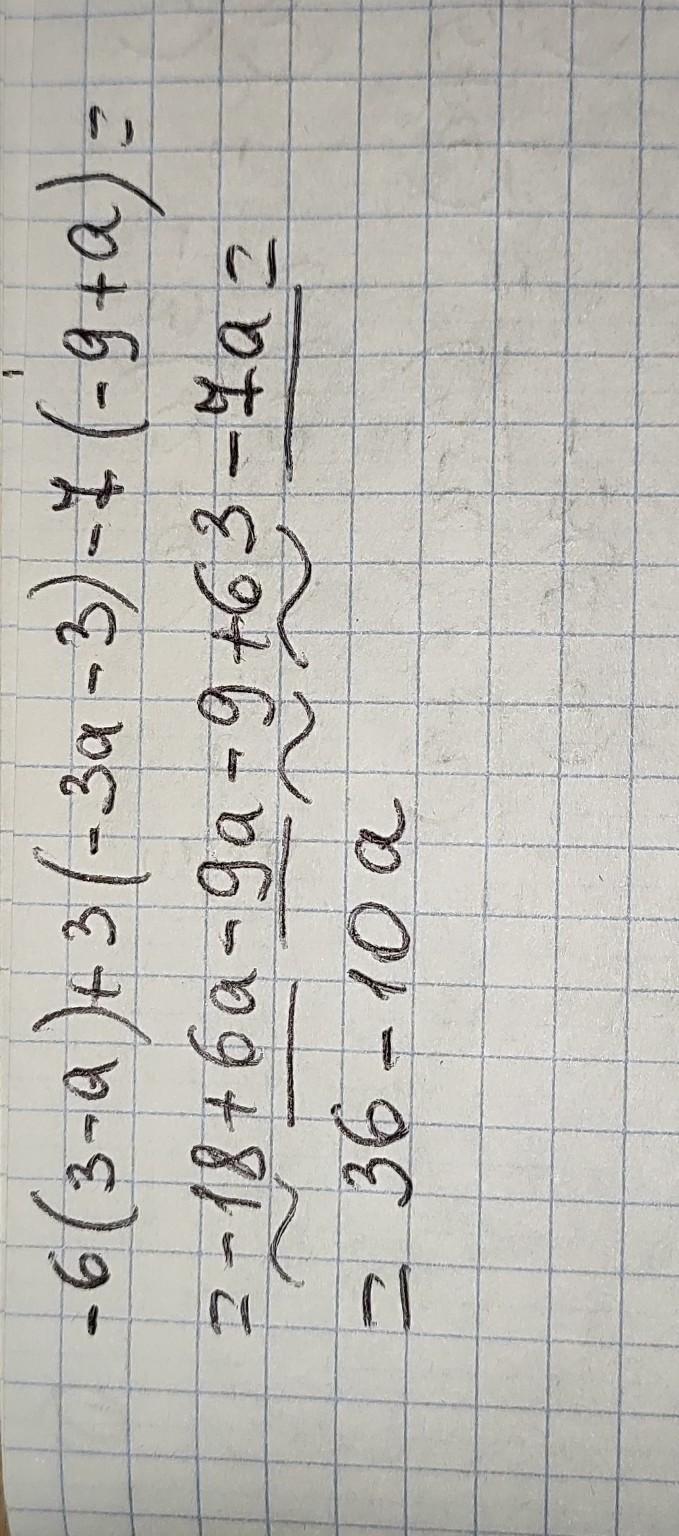 -6(3-a)+3(-3a-3)-7(-9+a)=
=-18+6a-9a-9+63-7a=
= 36-10a